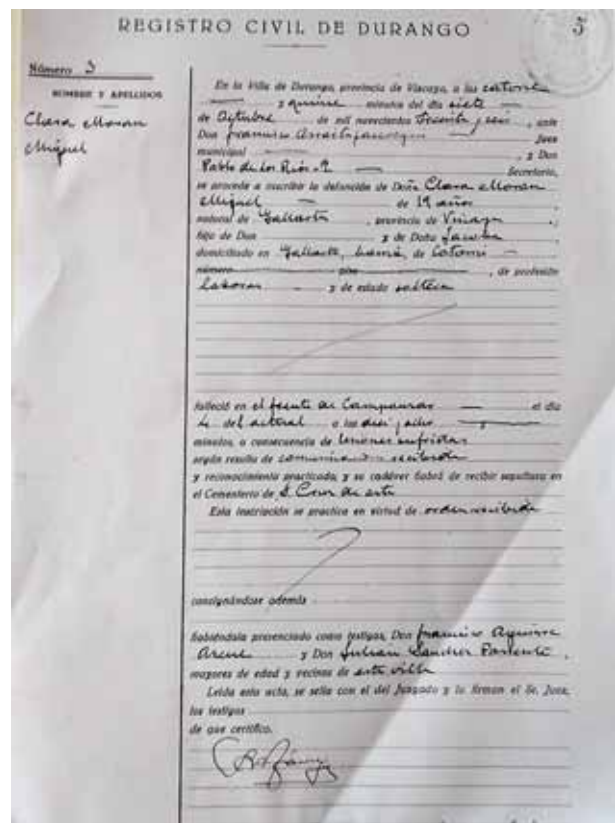 REGISTRO CIVIL DE DURANGO
3
Número 3
NOMBRE Y APELLIDOS
Clara Moran
Miguel
En la Villa de Durango, provincia de Vizcaya, a las catorce
y quince minutos del día siete
de Octubre de mil novecientos treinta y seis, ante
Don Francisco Juez
municipal , y Don
Pablo de los Rios Secretario,
se procede a inscribir la defunción de Doña Clara Moran
Miguel de 19 años
natural de Gallarta, provincia de Vizcaya
hijo de Don y de Doña Jacoba
domiciliado en Gallarta, de
número piso , de profesión
labores y de estado soltera
falleció en el frente de el día
4 del actual a las diez y ocho y
minutos, a consecuencia de lesiones sufridas
según resulta de recibida
y reconocimiento practicado, y su cadáver habrá de recibir sepultura en
el Cementerio de S. Cruz de esta
Esta inscripción se practica en virtud de orden recibida
consignándose además
habiéndola presenciado como testigos, Don Francisco Aguirre
y Don Julian Sanchez
mayores de edad y vecinos de esta villa
Leída esta acta, se sella con el del Juzgado y la firman el Sr. Juez,
los testigos
de que certifico.